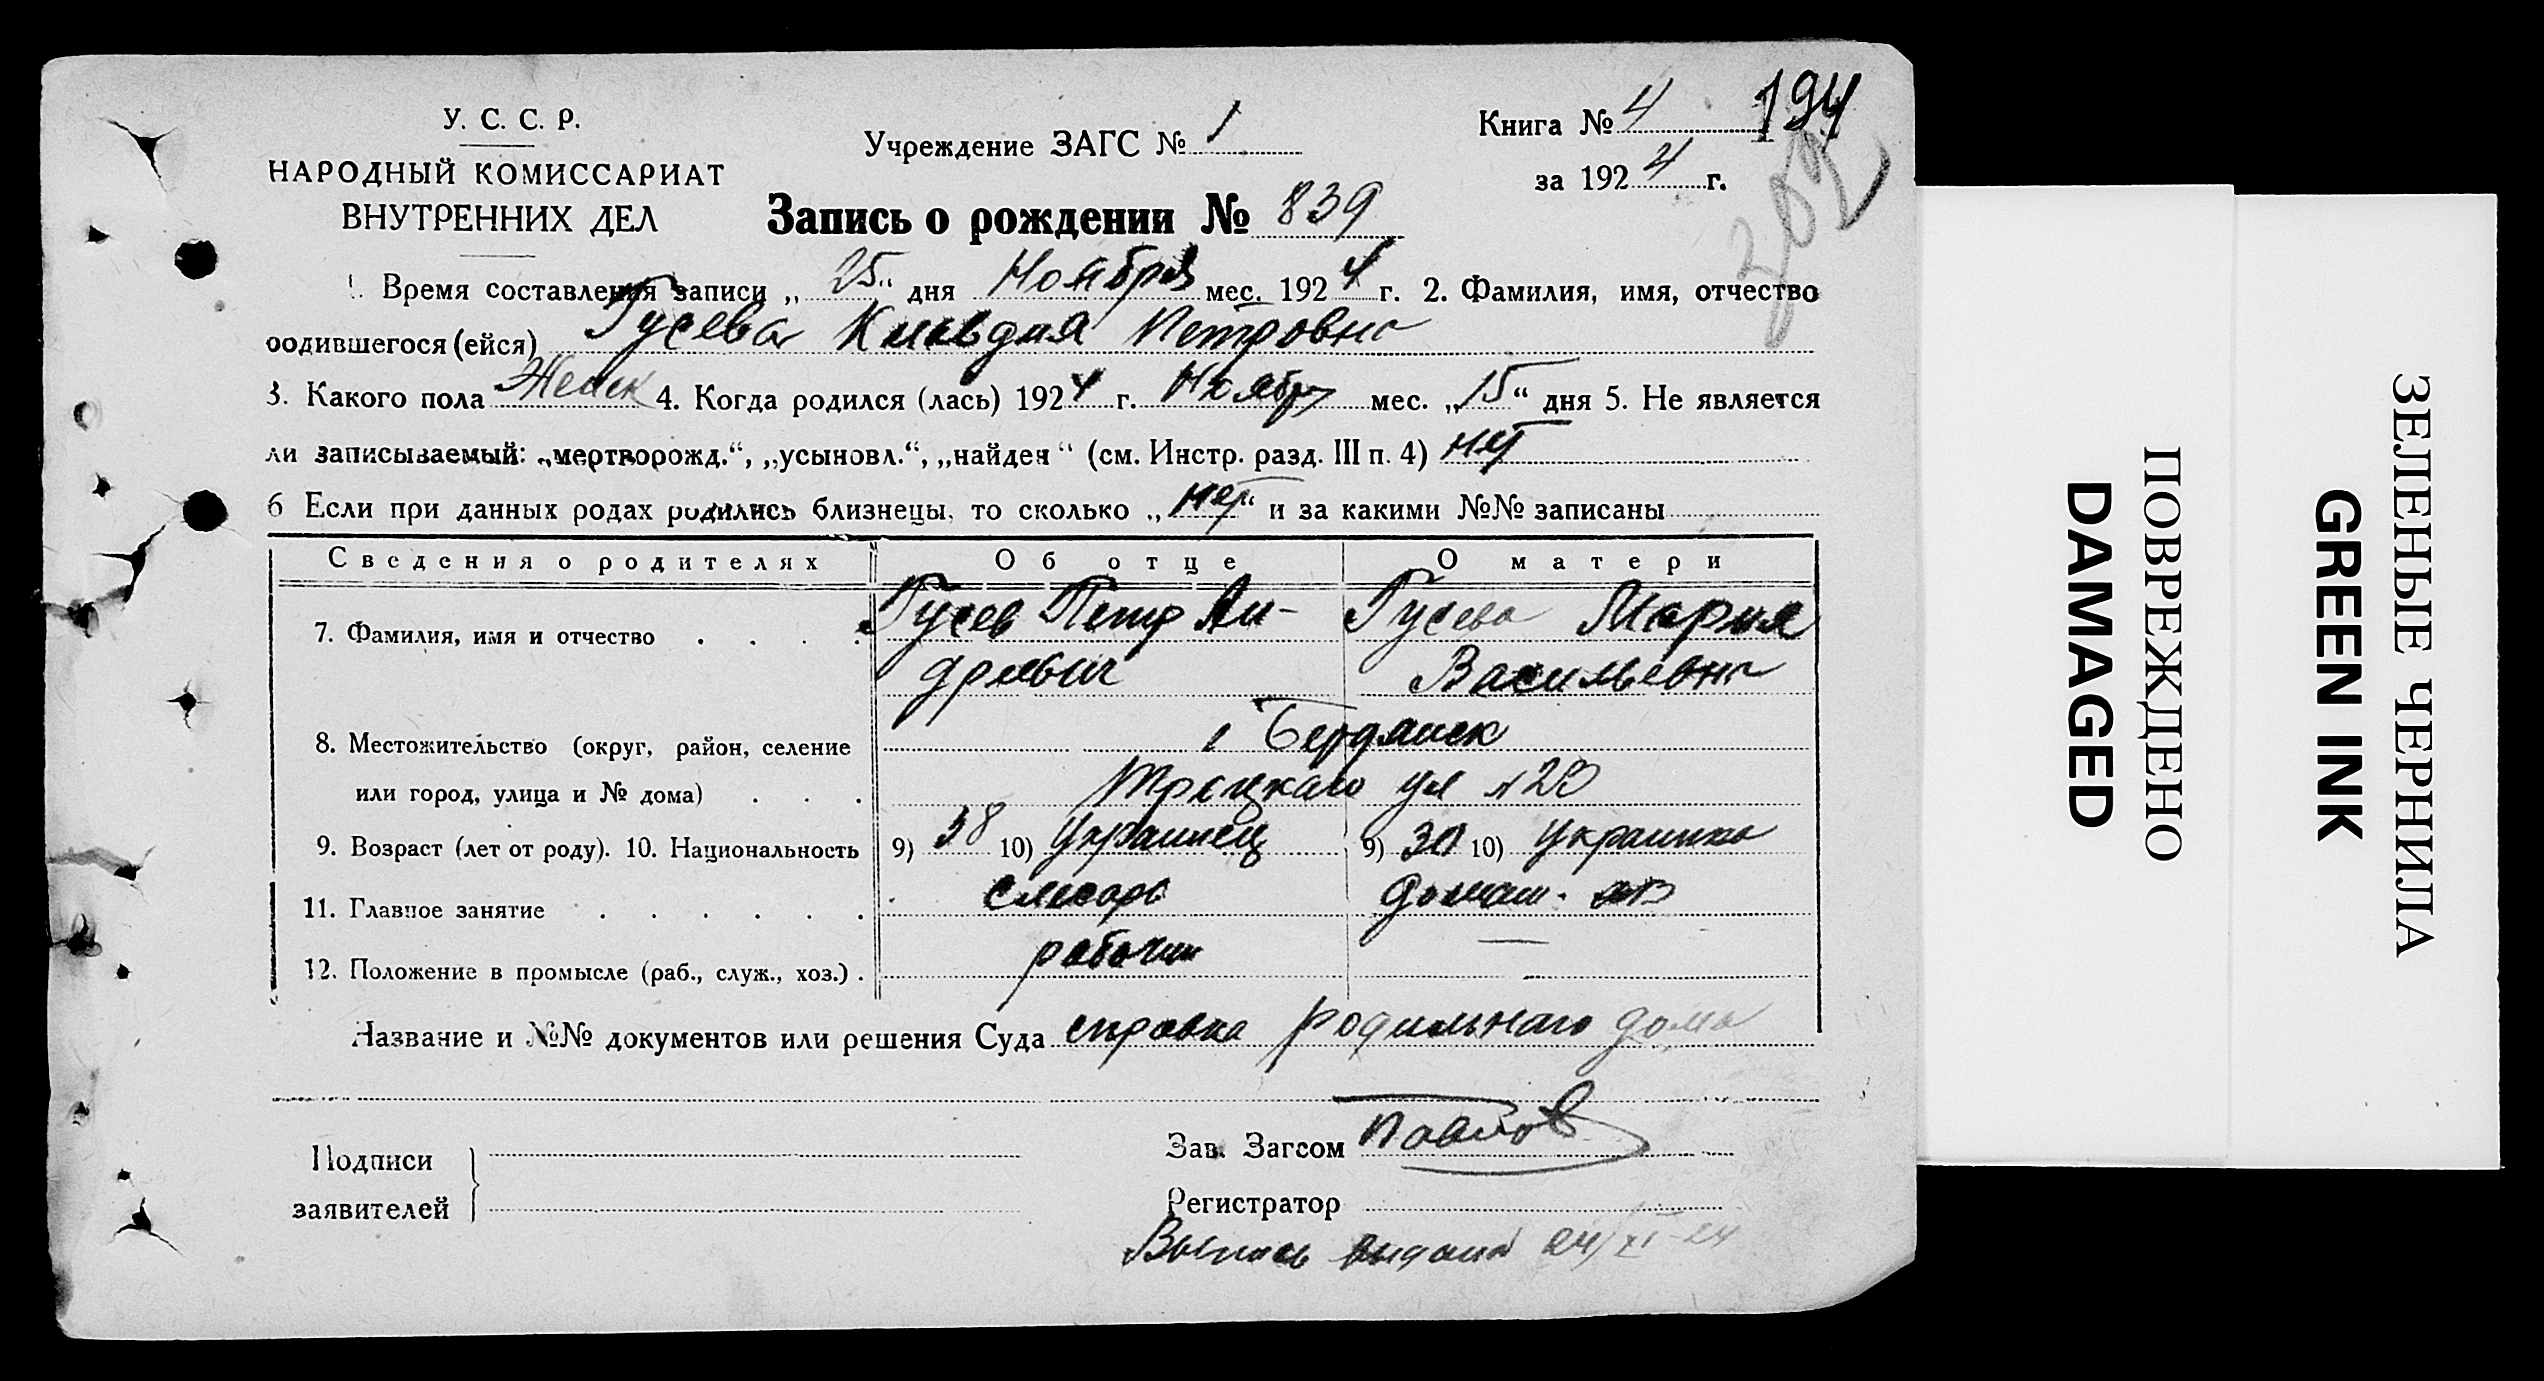 У. С. С. Р.
НАРОДНЫЙ КОМИССАРИАТ
ВНУТРЕННИХ ДЕЛ
Учреждение ЗАГС № 1
Книга № 4
194
202
за 1924 г.
Запись о рождении № 839
1. Время составления записи „25“ дня Ноября мес. 1924 г. 2. Фамилия, имя, отчество
родившегося (ейся) Гусева Клавдия Петровна
3. Какого пола Женск 4. Когда родился (лась) 1924 г. Ноября мес. „15“ дня 5. Не является
ли записываемый: „мертворожд.“, „усыновл.“, „найден“ (см. Инстр. разд. III п. 4) нет
6 Если при данных родах родились близнецы, то сколько „нет“ и за какими №№ записаны
Сведения о родителях Об отце О матери
7. Фамилия, имя и отчество . . . . Гусев Петр Ан- Гусева Мария
дреевич Васильевна
8. Местожительство (округ, район, селение г Бердянск
или город, улица и № дома) . . . Троцкаго ул № 23
9. Возраст (лет от роду). 10. Национальность 9) 38 10) Украинец 9) 30 10) Украинка
11. Главное занятие . . . . . . слесарь домаш. хоз
12. Положение в промысле (раб., служ., хоз.) . рабочий —
Название и №№ документов или решения Суда справка родильнаго дома
Подписи
заявителей
Зав. Загсом Павлов
Регистратор
Выпись выдана 24/XI-24
ПОВРЕЖДЕНО
DAMAGED
ЗЕЛЕНЫЕ ЧЕРНИЛА
GREEN INK